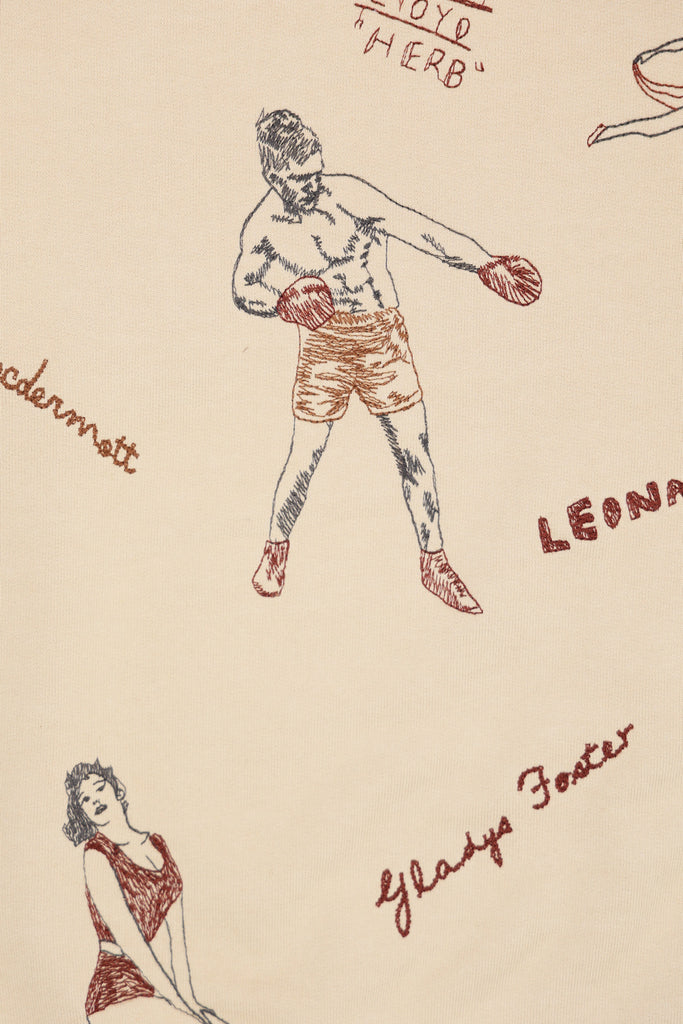 LLOYD
"HERB"
cdermott
LEONA
Gladys Foster